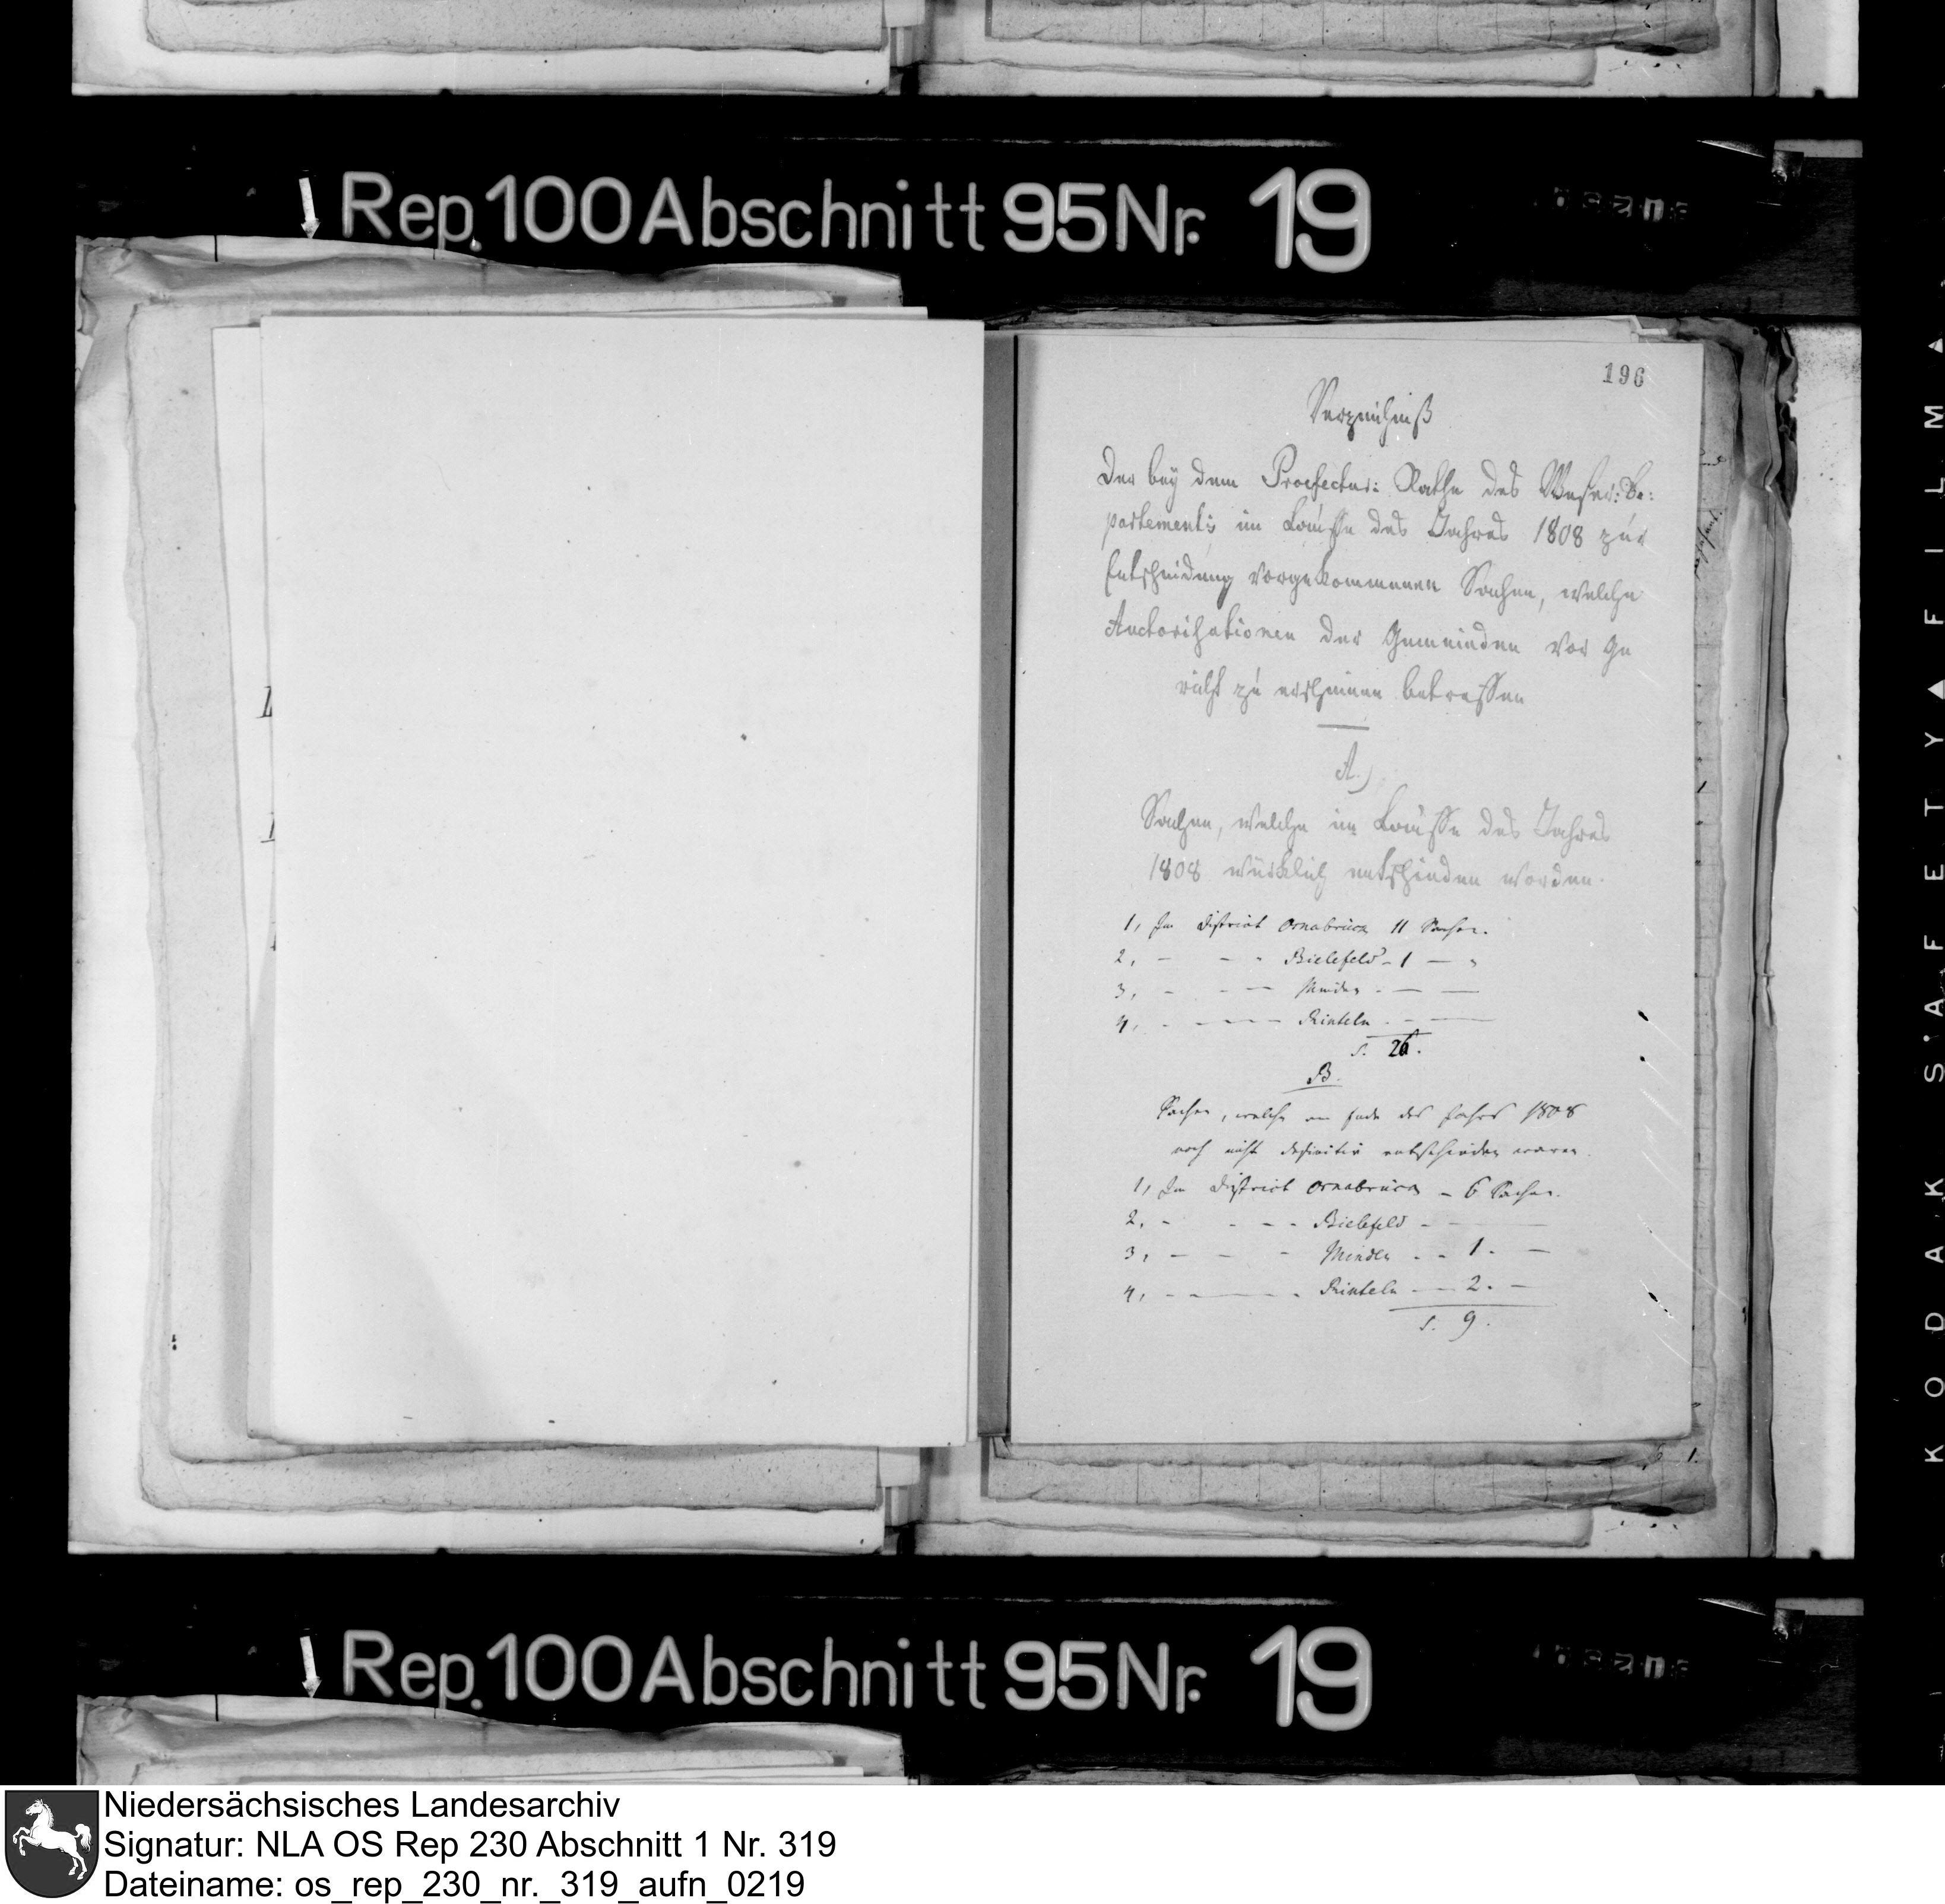 Rep. 100 Abschnitt 95 Nr. 19
196
Verzeichniß
Der bey dem Praefectur: Rathe des Weser: De:
partements im Lauffe des Jahres 1808 zur
Entscheidung vorgekommenen Sachen, welche
Auctorisationen der Gemeinden vor Ge
richt zu erscheinen betreffen
A.)
Sachen, welche im Lauffe des Jahres
1808 würklich entschieden worden.
1, Im District Osnabrück 11 Sachen.
2, - - - Bielefeld - 1 — -
3, - - — Minden - — —
4, - - - — Rinteln - - —
S. 26.
B.
Sachen, welche am Ende des Jahrs 1808
noch nicht definitiv entschieden waren.
1, Im District Osnabrück - 6 Sachen.
2, - - - - Bielefeld - —
3, - - - Minden - - 1. —
4, - — - Rinteln - — 2. —
S. 9.
Rep. 100 Abschnitt 95 Nr. 19
KODAK SAFETY FILM
Niedersächsisches Landesarchiv
Signatur: NLA OS Rep 230 Abschnitt 1 Nr. 319
Dateiname: os_rep_230_nr._319_aufn_0219